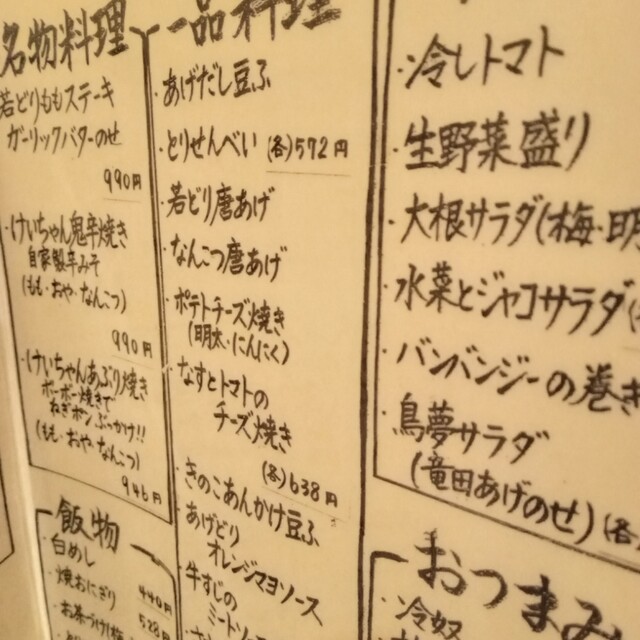 名物料理
若どりももステーキ
ガーリックバターのせ
990円
・けいちゃん鬼辛焼き
自家製辛みそ
(もも・おや・なんこつ)
990円
・けいちゃんあぶり焼き
ボーボー焼きて
ねぎポンぶっかけ!!
(もも・おや・なんこつ)
946円
飯物
・白めし
・焼おにぎり
440円
・お茶づけ(梅
528円
一品料理
・あげだし豆ふ
・とりせんべい (各)572円
・若どり唐あげ
・なんこつ唐あげ
・ポテトチーズ焼き
(明太・にんにく)
・なすとトマトの
チーズ焼き
(各)638円
・きのこあんかけ豆ふ
・あげどり
オレンジマヨソース
・牛すじの
ミートソー
・冷しトマト
・生野菜盛り
・大根サラダ(梅・明
・水菜とジャコサラダ(
・バンバンジーの巻き
・鳥夢サラダ
(竜田あげのせ)(各
おつまみ
・冷奴